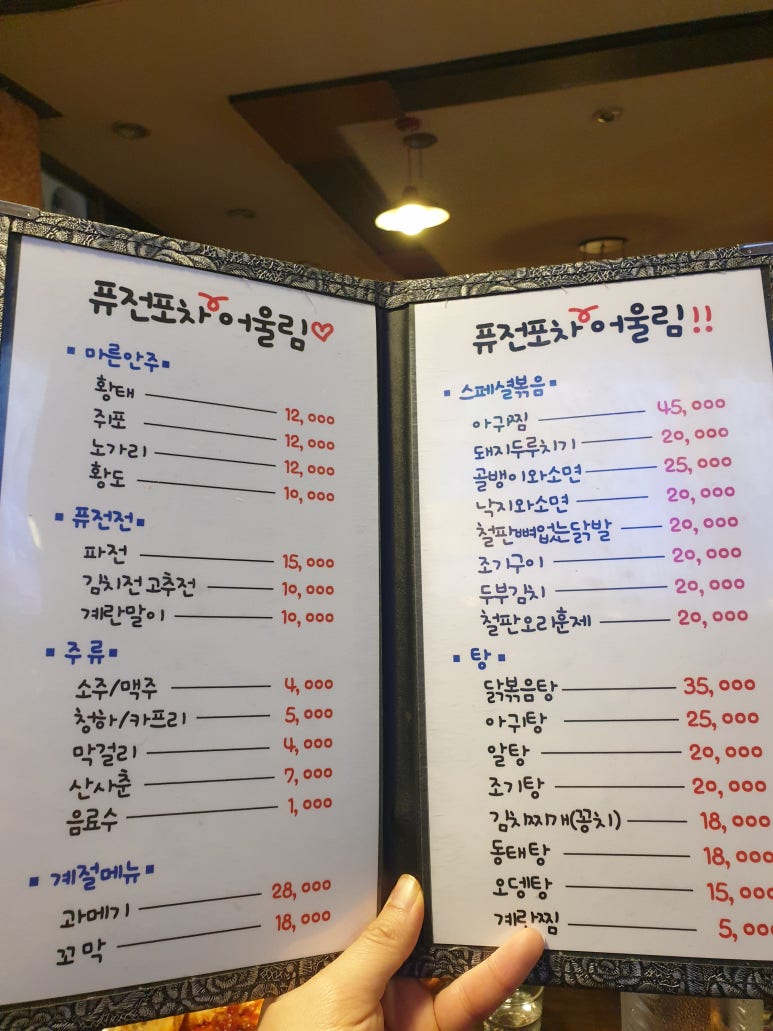 퓨전포차 어울림♡
▪마른안주▪
황태 12,000
쥐포 12,000
노가리 12,000
황도 10,000
▪퓨전전▪
파전 15,000
김치전 고추전 10,000
계란말이 10,000
▪주류▪
소주/맥주 4,000
청하/카프리 5,000
막걸리 4,000
산사춘 7,000
음료수 1,000
▪계절메뉴▪
과메기 28,000
꼬막 18,000
퓨전포차 어울림!!
▪스페셜볶음▪
아귀찜 45,000
돼지두루치기 20,000
골뱅이와소면 25,000
낙지와소면 20,000
철판뼈없는닭발 20,000
조기구이 20,000
두부김치 20,000
철판오리훈제 20,000
▪탕▪
닭볶음탕 35,000
아귀탕 25,000
알탕 20,000
조기탕 20,000
김치찌개(꽁치) 18,000
동태탕 18,000
오뎅탕 15,000
계란찜 5,000